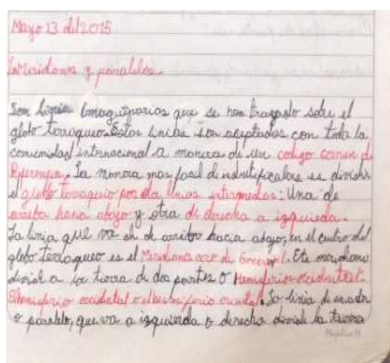 Mayo 13 del 2015
Meridianos y paralelos.
Son linias imaginarias que se han trazado sobre el
globo terraqueo. Estas linias son aceptadas con toda la
comunidad internacional a manera de un codigo comun de
La manera mas facil de indentificalas es dividir
el globo terraquio por dos linias intermedias: Una de
arriba hacia abajo y otra de derecha a izquierda.
La linia que va en de arriba hacia abajo, en el centro del
globo terraqueo es el Meridiano cero de Este meridiano
divide a la tierra de dos partes o Hemisferio occidental:
El hemisferio occidental o el hemisferio oriental. La linia de ecuador
o paralelo, que va a izquierda o derecha divide la tierra